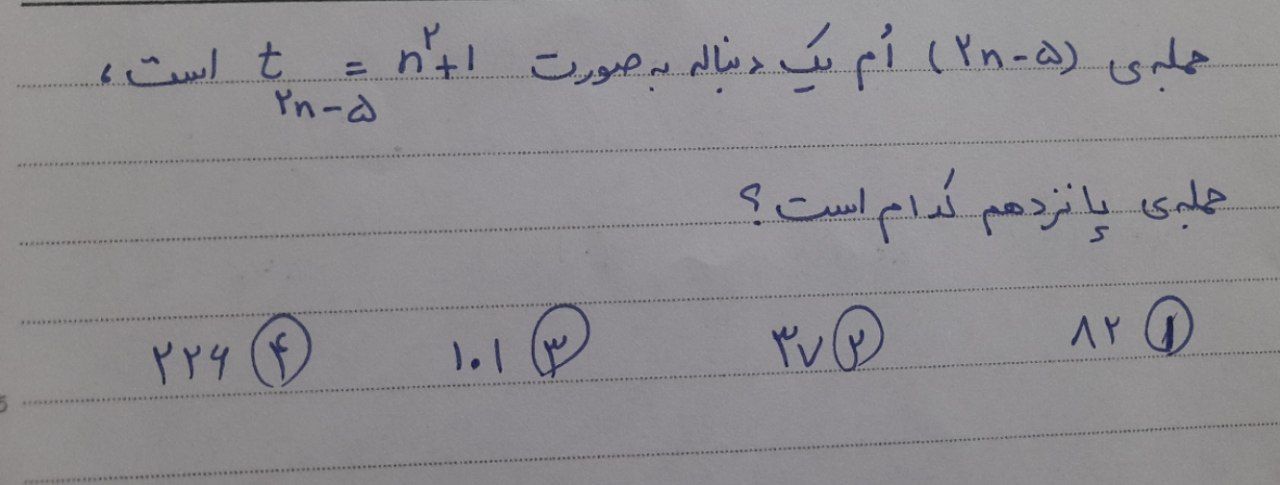 جمله‌ی (۲n-۵) اُم یک دنباله به صورت t₂ₙ₋₅ = n²+۱ است،
جمله‌ی پانزدهم کدام است؟
① ۸۲ ② ۳۷ ③ ۱۰۱ ④ ۲۲۶